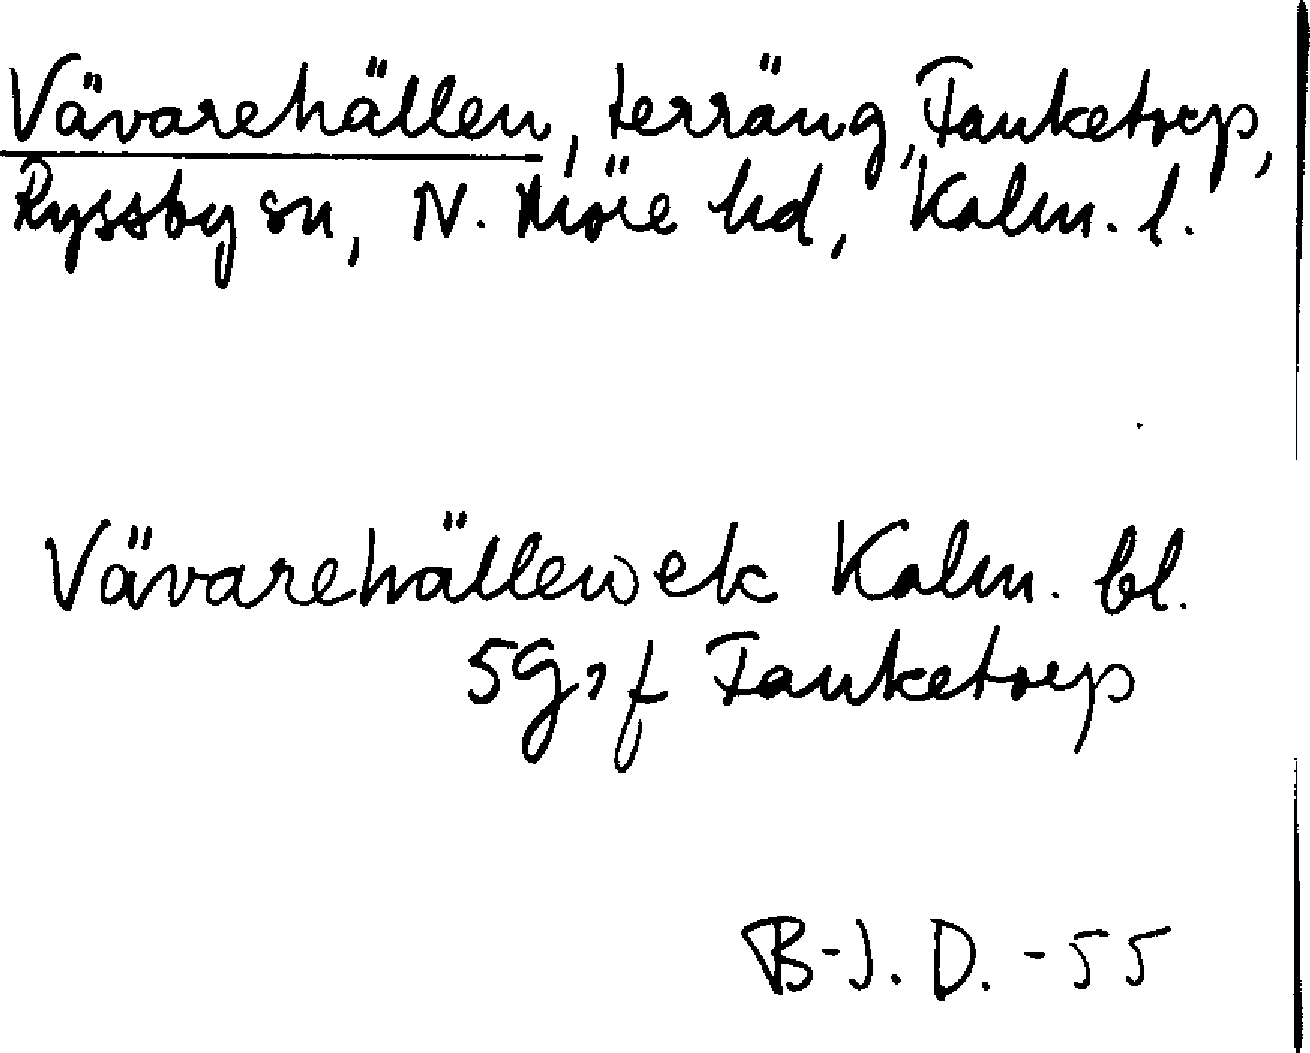 Vävarehällen, terräng, Tanketorp,
Ryssby sn, N. Möre hd, Kalm. l.
Vävarehällen ek Kalm. bl.
5G, f Tanketorp
B-J. D. -55